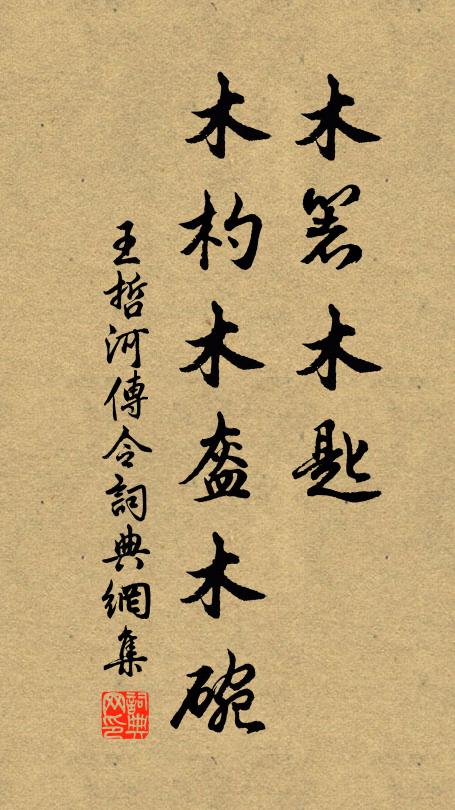 木箸木匙
木杓木盔木碗
王哲河傳令詞典網集
詞典網印